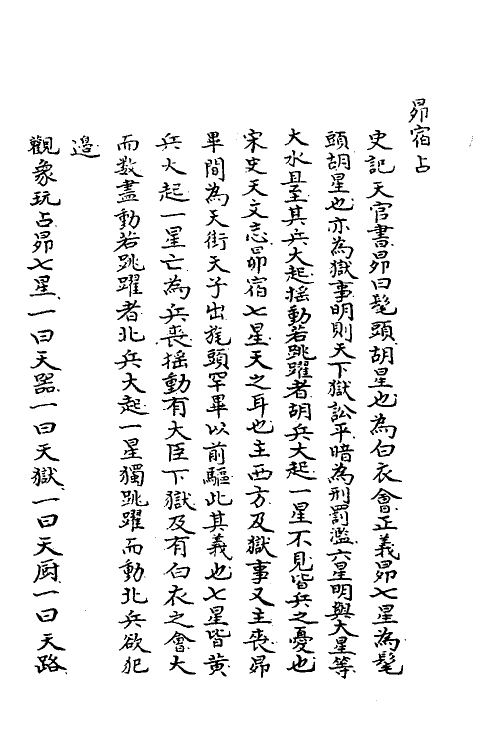 昴宿占
史記天官書昴曰髦頭胡星也為白衣會正義昴七星為髦
頭胡星也亦為獄事明則天下獄訟平暗為刑罰濫六星明與大星等
大水且至其兵大起摇動若跳躍者胡兵大起一星不見皆兵之憂也
宋史天文志昴宿七星天之耳也主西方及獄事又主喪昴
畢間為天街天子出旄頭罕畢以前驅此其義也七星皆黄
兵大起一星亡為兵喪摇動有大臣下獄及有白衣之會大
而数盡動若跳躍者北兵大起一星獨跳躍而動北兵欲犯
邉
觀象玩占昴七星一曰天器一曰天獄一曰天厨一曰天路